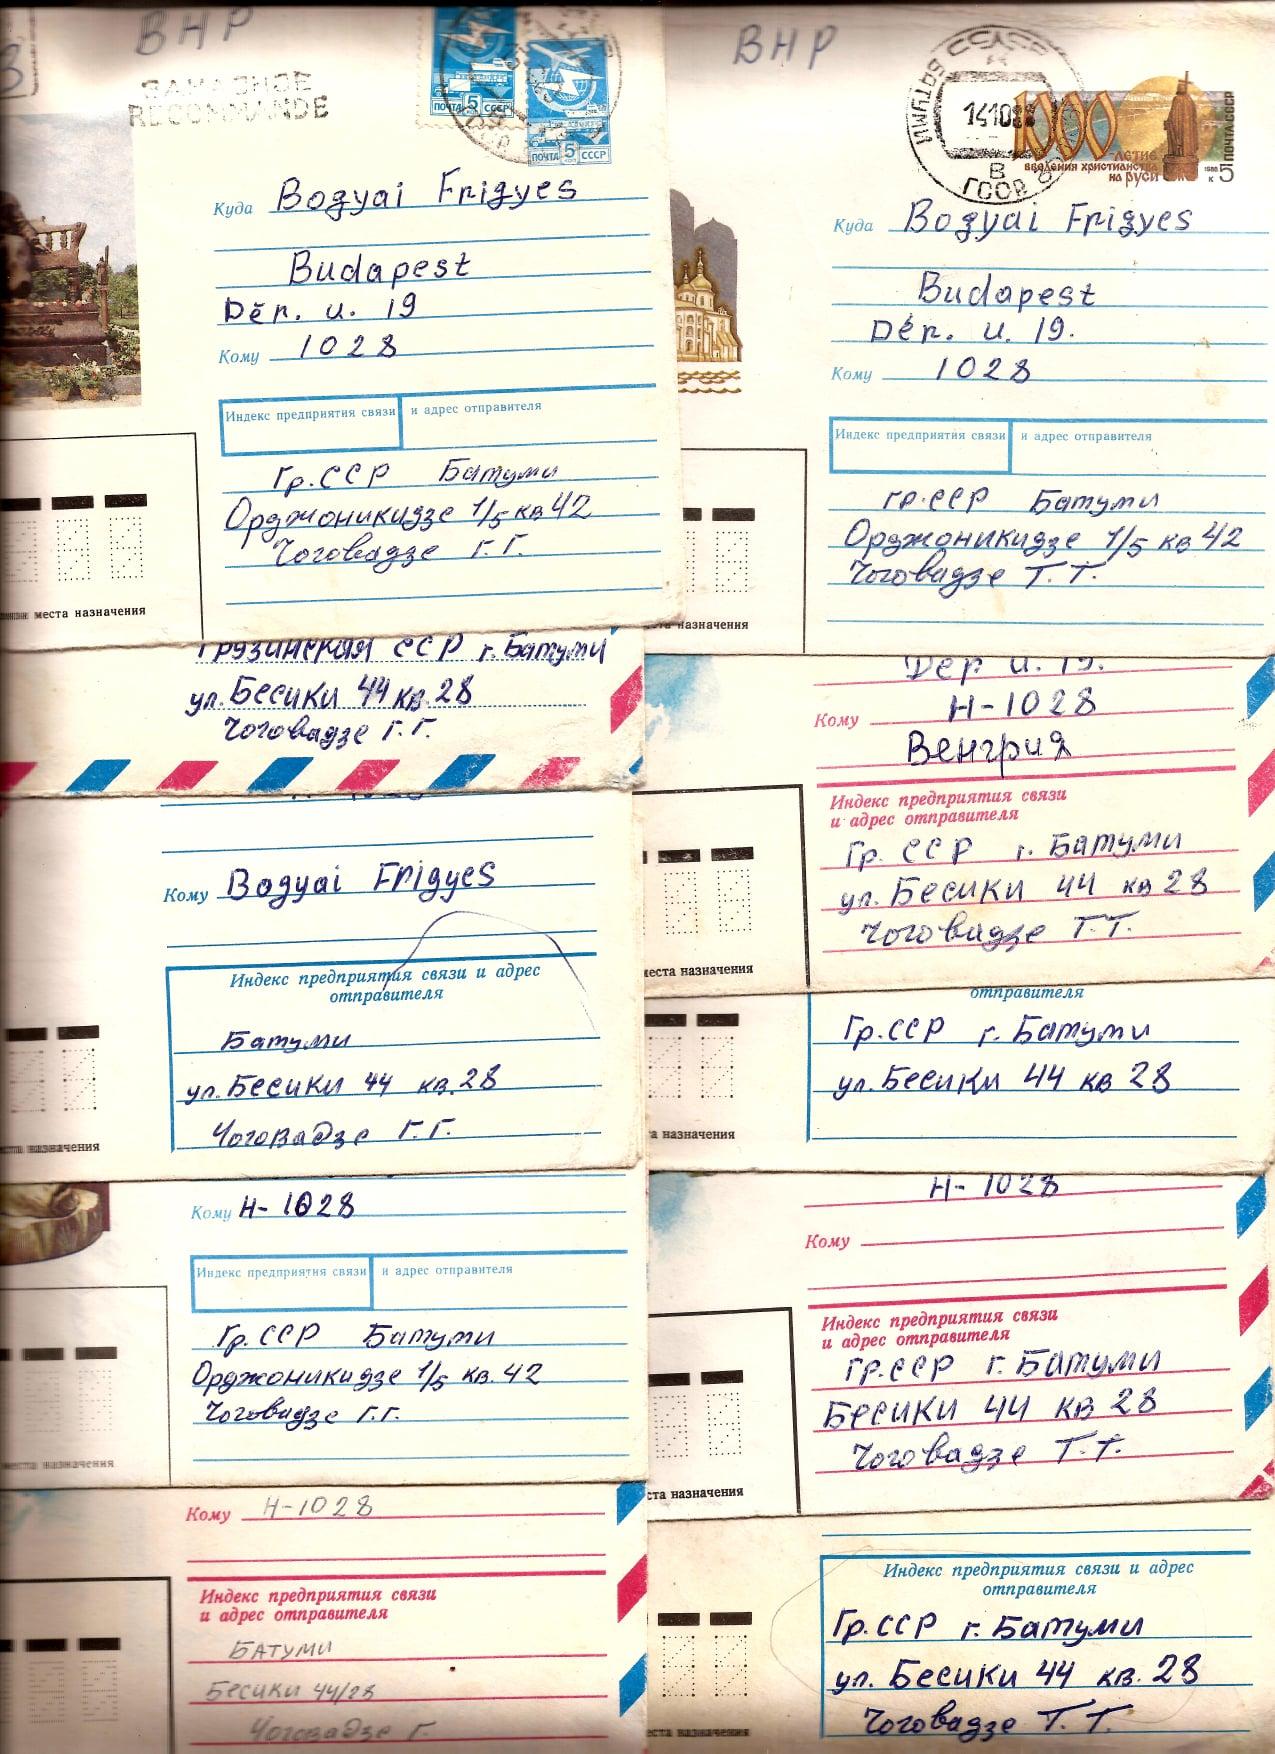 ВНР
ЗАКАЗНОЕ
RECOMMANDE
ПОЧТА 5 СССР
ПОЧТА 5 СССР
Куда Bogyai Frigyes
Budapest
Dér. u. 19
Кому 1028
Индекс предприятия связи и адрес отправителя
Гр.ССР Батуми
Орджоникидзе 1/5 кв 42
Чоговадзе Г. Г.
места назначения
ВНР
БАТУМИ
141088
В
ГССР
1000
-ЛЕТИЕ
ВВЕДЕНИЯ ХРИСТИАНСТВА
НА РУСИ
1988
к 5
ПОЧТА СССР
Куда Bogyai Frigyes
Budapest
Dér. u. 19.
Кому 1028
Индекс предприятия связи и адрес отправителя
гр.ССР Батуми
Орджоникидзе 1/5 кв 42
Чоговадзе Т. Т.
назначения
Грузинская ССР г. Батуми
ул. Бесики 44 кв. 28
Чоговадзе Г. Г.
Dér u. 19.
Кому Н-1028
Венгрия
Индекс предприятия связи
и адрес отправителя
Гр. ССР г. Батуми
ул. Бесики 44 кв 28
Чоговадзе Т.Т.
места назначения
Кому Bogyai Frigyes
Индекс предприятия связи и адрес
отправителя
Батуми
ул. Бесики 44 кв. 28
Чоговадзе Г. Г.
назначения
отправителя
Гр.ССР г. Батуми
ул. Бесики 44 кв 28
назначения
Кому Н-1028
Индекс предприятия связи и адрес отправителя
Гр.ССР Батуми
Орджоникидзе 1/5 кв. 42
Чоговадзе Г.Г.
места назначения
Н-1028
Кому
Индекс предприятия связи
и адрес отправителя
Гр.ССР г. Батуми
Бесики 44 кв 28
Чоговадзе Т. Т.
назначения
Кому Н-1028
Индекс предприятия связи
и адрес отправителя
БАТУМИ
Бесики 44/28
Чоговадзе Г.
Индекс предприятия связи и адрес
отправителя
Гр.ССР г. Батуми
ул. Бесики 44 кв. 28
Чоговадзе Т. Т.
места назначения